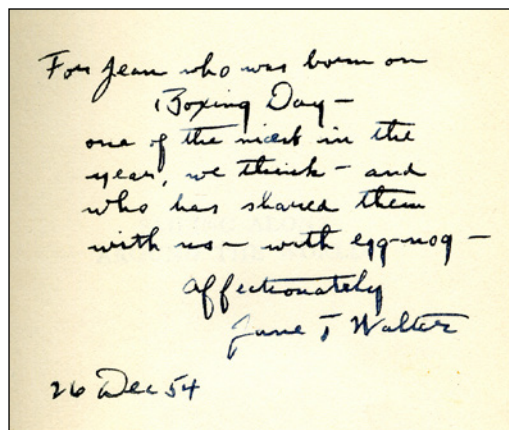 For Jean who was born on
Boxing Day –
one of the nicest in the
year, we think – and
who has shared them
with us – with egg-nog –
Affectionately
June T Walter
26 Dec 54